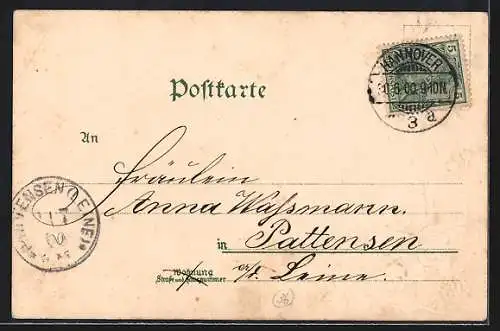 5
HANNOVER
6.00.9-10N.
5
3 a
Postkarte
An
Fräulein
Anna Waßmann.
PATTENSEN (LEINE)
in Pattensen
Wohnung
Straße und Hausnummer
a/d. Leine.